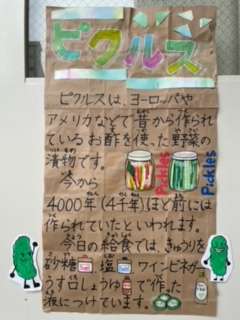 ピクルス
ピクルスは、ヨーロッパや
アメリカなどで昔から作られ
ているお酢を使った野菜の
漬物です。
今から
4000年（4千年）ほど前には
作られていたといわれます。
今日の給食では、きゅうりを
砂糖 塩 ワインビネガー
うす口しょうゆ で作った
液につけています。
Pickles
Pickles